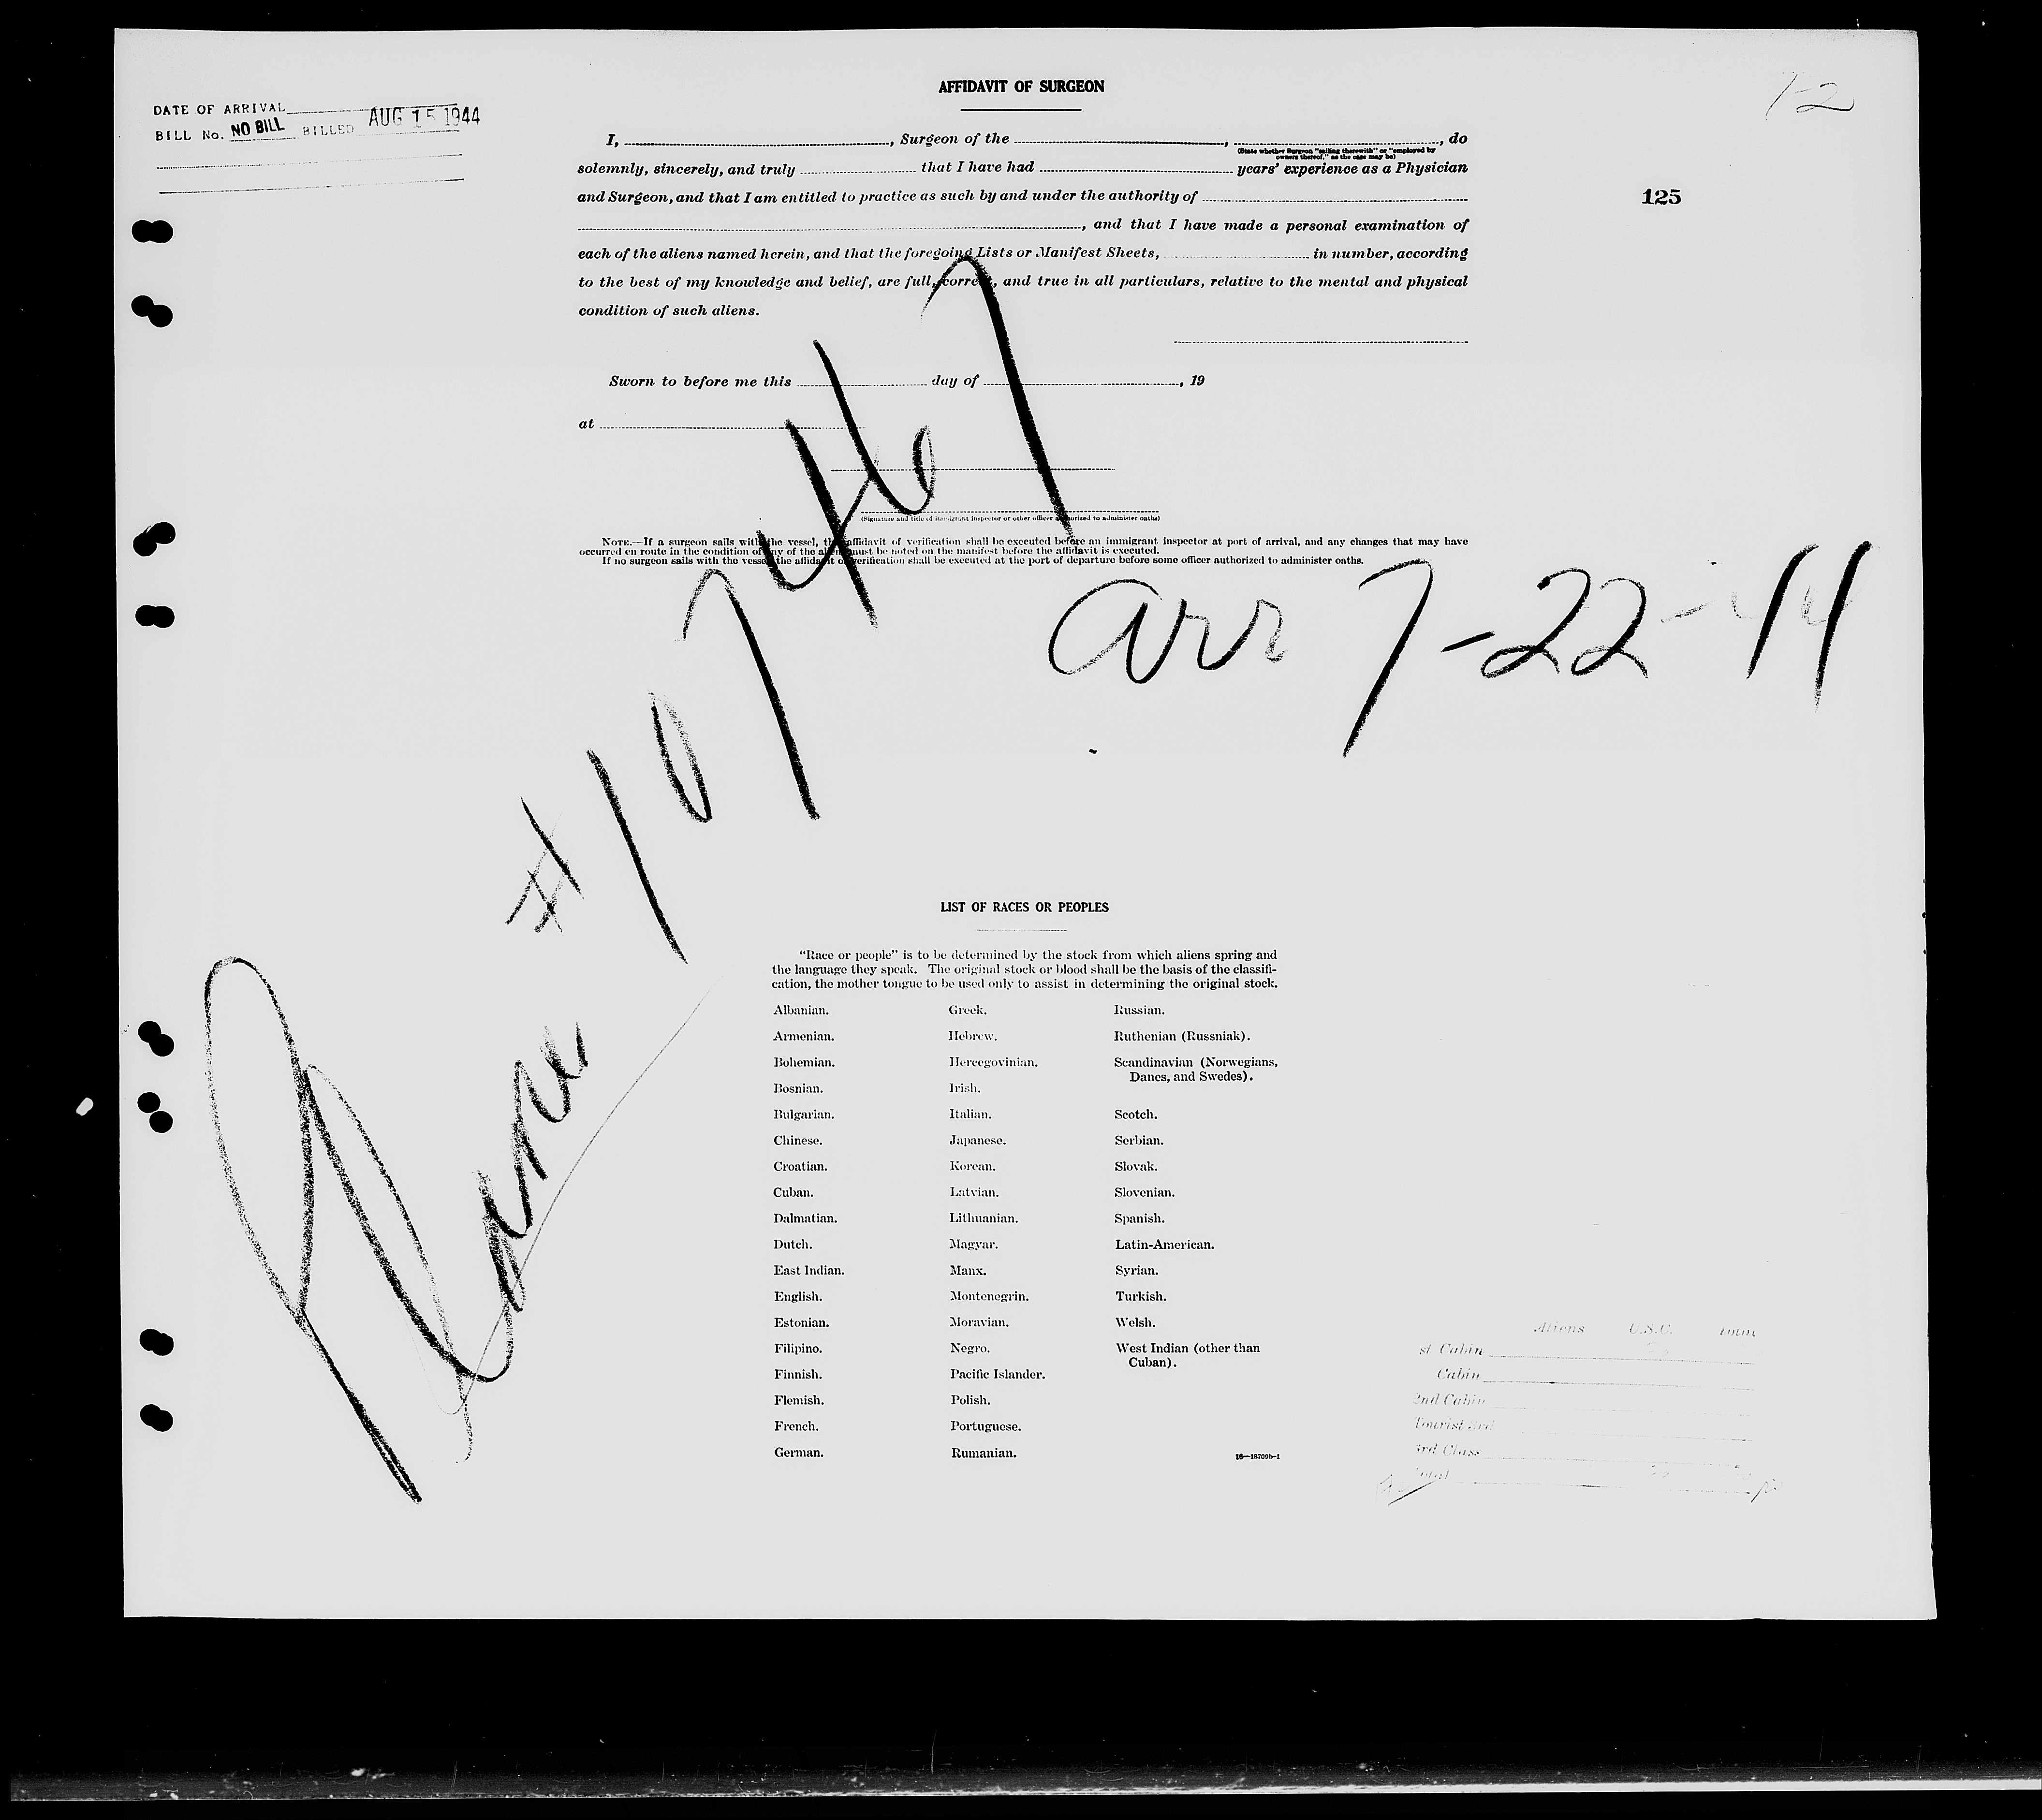 AFFIDAVIT OF SURGEON
1-2
DATE OF ARRIVAL
BILL No. NO BILL BILLED AUG 15 1944
I, , Surgeon of the , , do
(State whether Surgeon "sailing therewith" or "employed by
owners thereof," as the case may be)
solemnly, sincerely, and truly that I have had years' experience as a Physician
and Surgeon, and that I am entitled to practice as such by and under the authority of
125
, and that I have made a personal examination of
each of the aliens named herein, and that the foregoing Lists or Manifest Sheets, in number, according
to the best of my knowledge and belief, are full, correct, and true in all particulars, relative to the mental and physical
condition of such aliens.
Sworn to before me this day of , 19
at
(Signature and title of immigrant inspector or other officer authorized to administer oaths)
NOTE.—If a surgeon sails with the vessel, the affidavit of verification shall be executed before an immigrant inspector at port of arrival, and any changes that may have
occurred en route in the condition of any of the aliens must be noted on the manifest before the affidavit is executed.
If no surgeon sails with the vessel, the affidavit of verification shall be executed at the port of departure before some officer authorized to administer oaths.
arr 7-22-44
Plane #107467
LIST OF RACES OR PEOPLES
"Race or people" is to be determined by the stock from which aliens spring and
the language they speak. The original stock or blood shall be the basis of the classifi-
cation, the mother tongue to be used only to assist in determining the original stock.
Albanian.
Armenian.
Bohemian.
Bosnian.
Bulgarian.
Chinese.
Croatian.
Cuban.
Dalmatian.
Dutch.
East Indian.
English.
Estonian.
Filipino.
Finnish.
Flemish.
French.
German.
Greek.
Hebrew.
Hercegovinian.
Irish.
Italian.
Japanese.
Korean.
Latvian.
Lithuanian.
Magyar.
Manx.
Montenegrin.
Moravian.
Negro.
Pacific Islander.
Polish.
Portuguese.
Rumanian.
Russian.
Ruthenian (Russniak).
Scandinavian (Norwegians,
Danes, and Swedes).
Scotch.
Serbian.
Slovak.
Slovenian.
Spanish.
Latin-American.
Syrian.
Turkish.
Welsh.
West Indian (other than
Cuban).
16—18709b-1
Aliens U.S.C. Total
st Cabin
Cabin
2nd Cabin
Tourist 3rd
3rd Class
Total